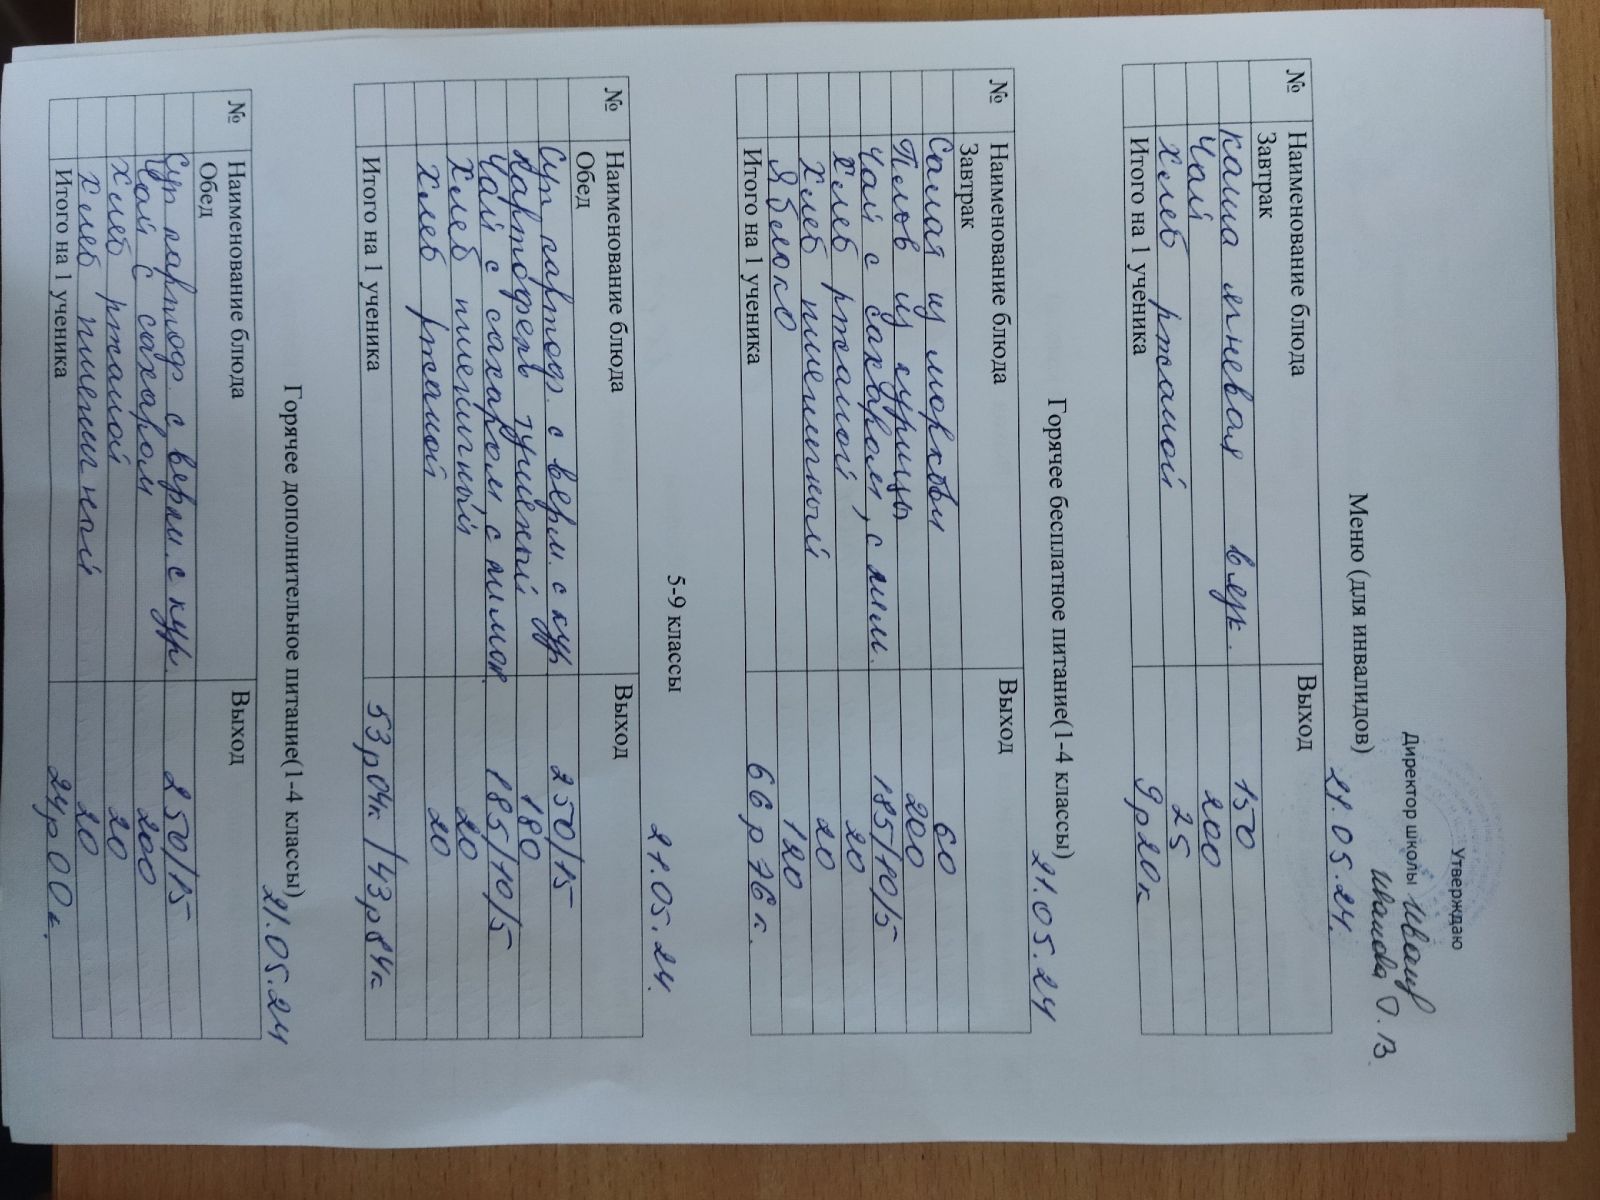 Утверждаю
Директор школы
Иванова О.В.
Меню (для инвалидов)
21.05.24.
№ Наименование блюда Выход
Завтрак
Каша ячневая вязк. 150
Чай 200
Хлеб ржаной 25
Итого на 1 ученика 9р20к
Горячее бесплатное питание(1-4 классы) 21.05.24
№ Наименование блюда Выход
Завтрак
Салат из моркови 60
Плов из курицы 200
Чай с сахаром, с лим. 185/10/5
Хлеб ржаной 20
Хлеб пшеничный 20
Яблоко 120
Итого на 1 ученика 66р 76к.
5-9 классы 21.05.24.
№ Наименование блюда Выход
Обед
Суп картоф. с верм. с кур 250/15
Картофель тушеный 180
Чай с сахаром с лимон. 185/10/5
Хлеб пшеничный 20
Хлеб ржаной 20
Итого на 1 ученика 53р04к/43р84к
Горячее дополнительное питание(1-4 классы) 21.05.24
№ Наименование блюда Выход
Обед
Суп картоф. с верм. с кур. 250/15
Чай с сахаром 200
Хлеб ржаной 20
Хлеб пшеничный 20
Итого на 1 ученика 24р00к.